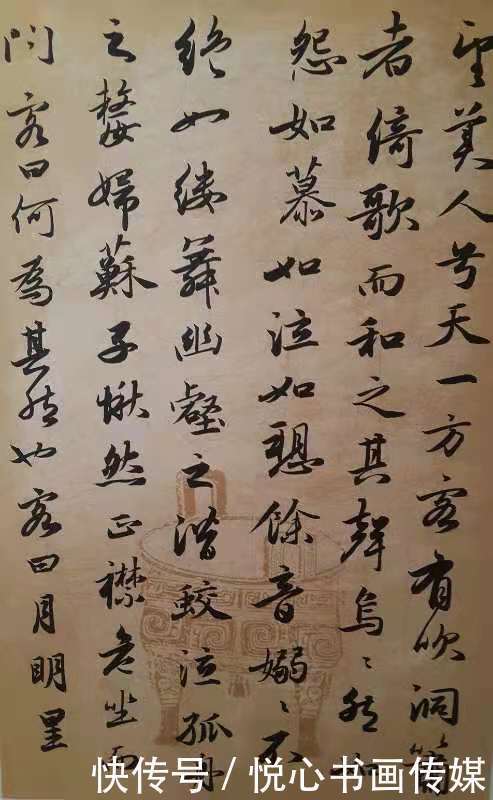 望美人兮天一方客有吹洞簫
者倚歌而和之其聲烏〻然如
怨如慕如泣如愬餘音嫋〻不
絕如縷舞幽壑之潛蛟泣孤舟
之嫠婦蘇子愀然正襟危坐而
問客曰何為其然也客曰月明星
快传号/悦心书画传媒